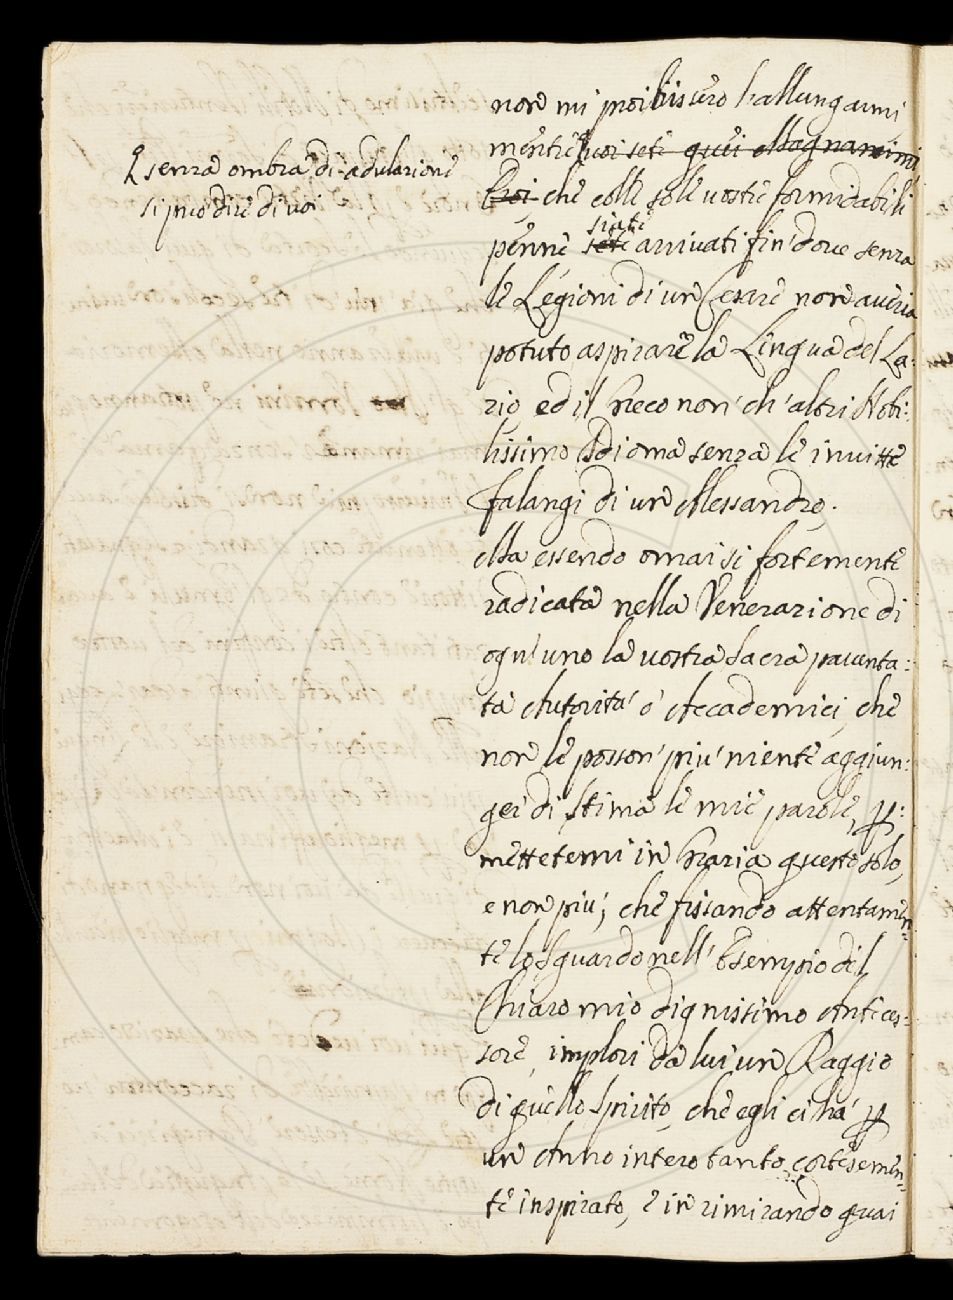 senza ombra di adulazione
si può dire di voi
non mi proibissero l'allungarmi,
mentre voi sete quei Magnanimi
Eroi, che colle sole vostre formidabili
penne sete siate arrivati fin' dove senza
le Legioni di un Cesare non avería
potuto aspirare la Lingua del La:
zio, ed il Greco non' ch' altro Nobi:
lissimo Idioma senza le invitte
falangi di un Alessandro.
Ma essendo omai si fortemente
radicata nella Venerazione di
ogn' uno la vostra Sacra paventa:
ta Autorita' o' Accademici, che
non le posson' piu' niente aggiun:
ger di stima le mie parole, p:
mettetemi in Grazia questo solo,
e non piu', che fissando attentamen:
te lo sguardo nell' Esempio del
Chiaro mio dignissimo Anteces:
sore, implori da lui un Raggio
di quello Spirito, che egli ci ha' p
un Anno intero tanto cortesemen:
te inspirato, e in rimirando quai